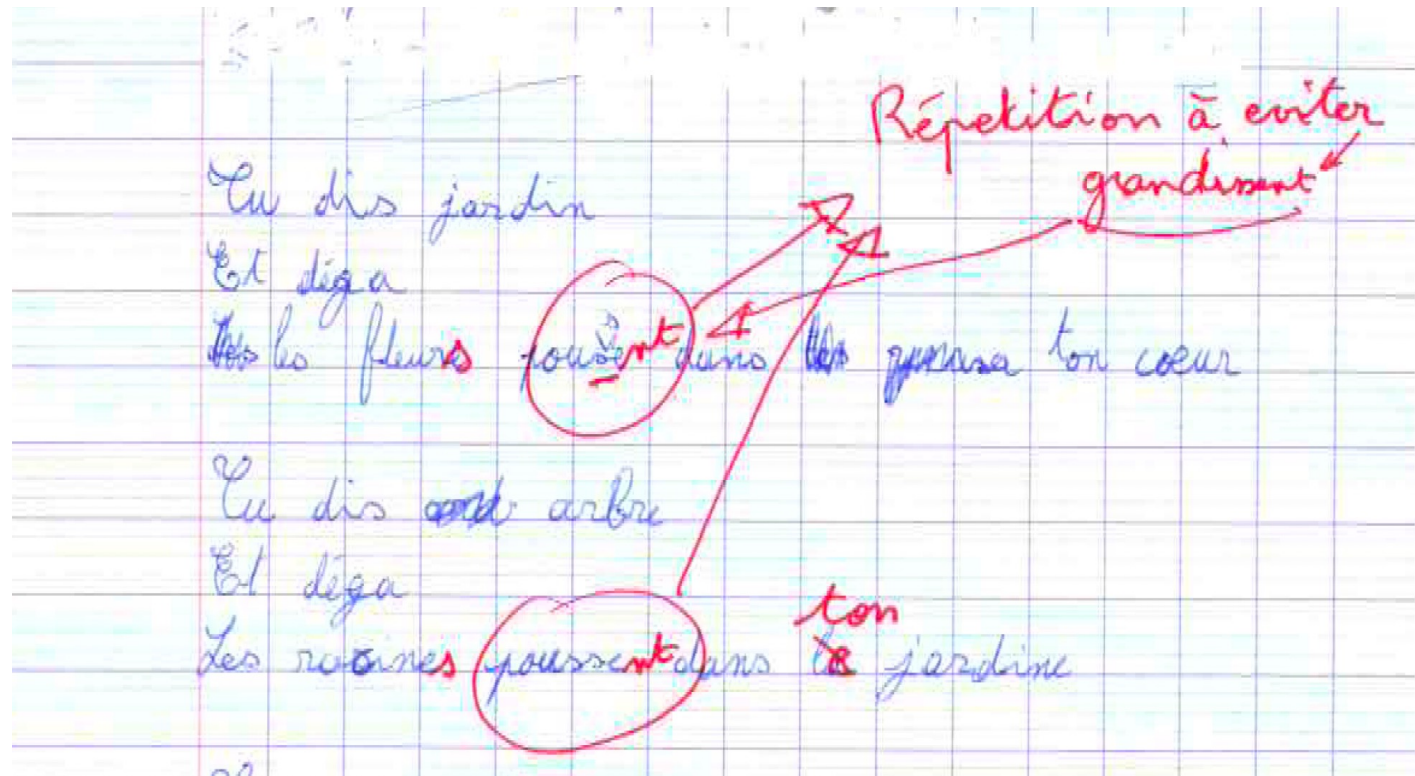 Répetition à eviter
grandissent
Tu dis jardin
Et déga
les fleurs poussent dans ton coeur
Tu dis arbre
Et déga
ton
Les racines poussent dans le jardine